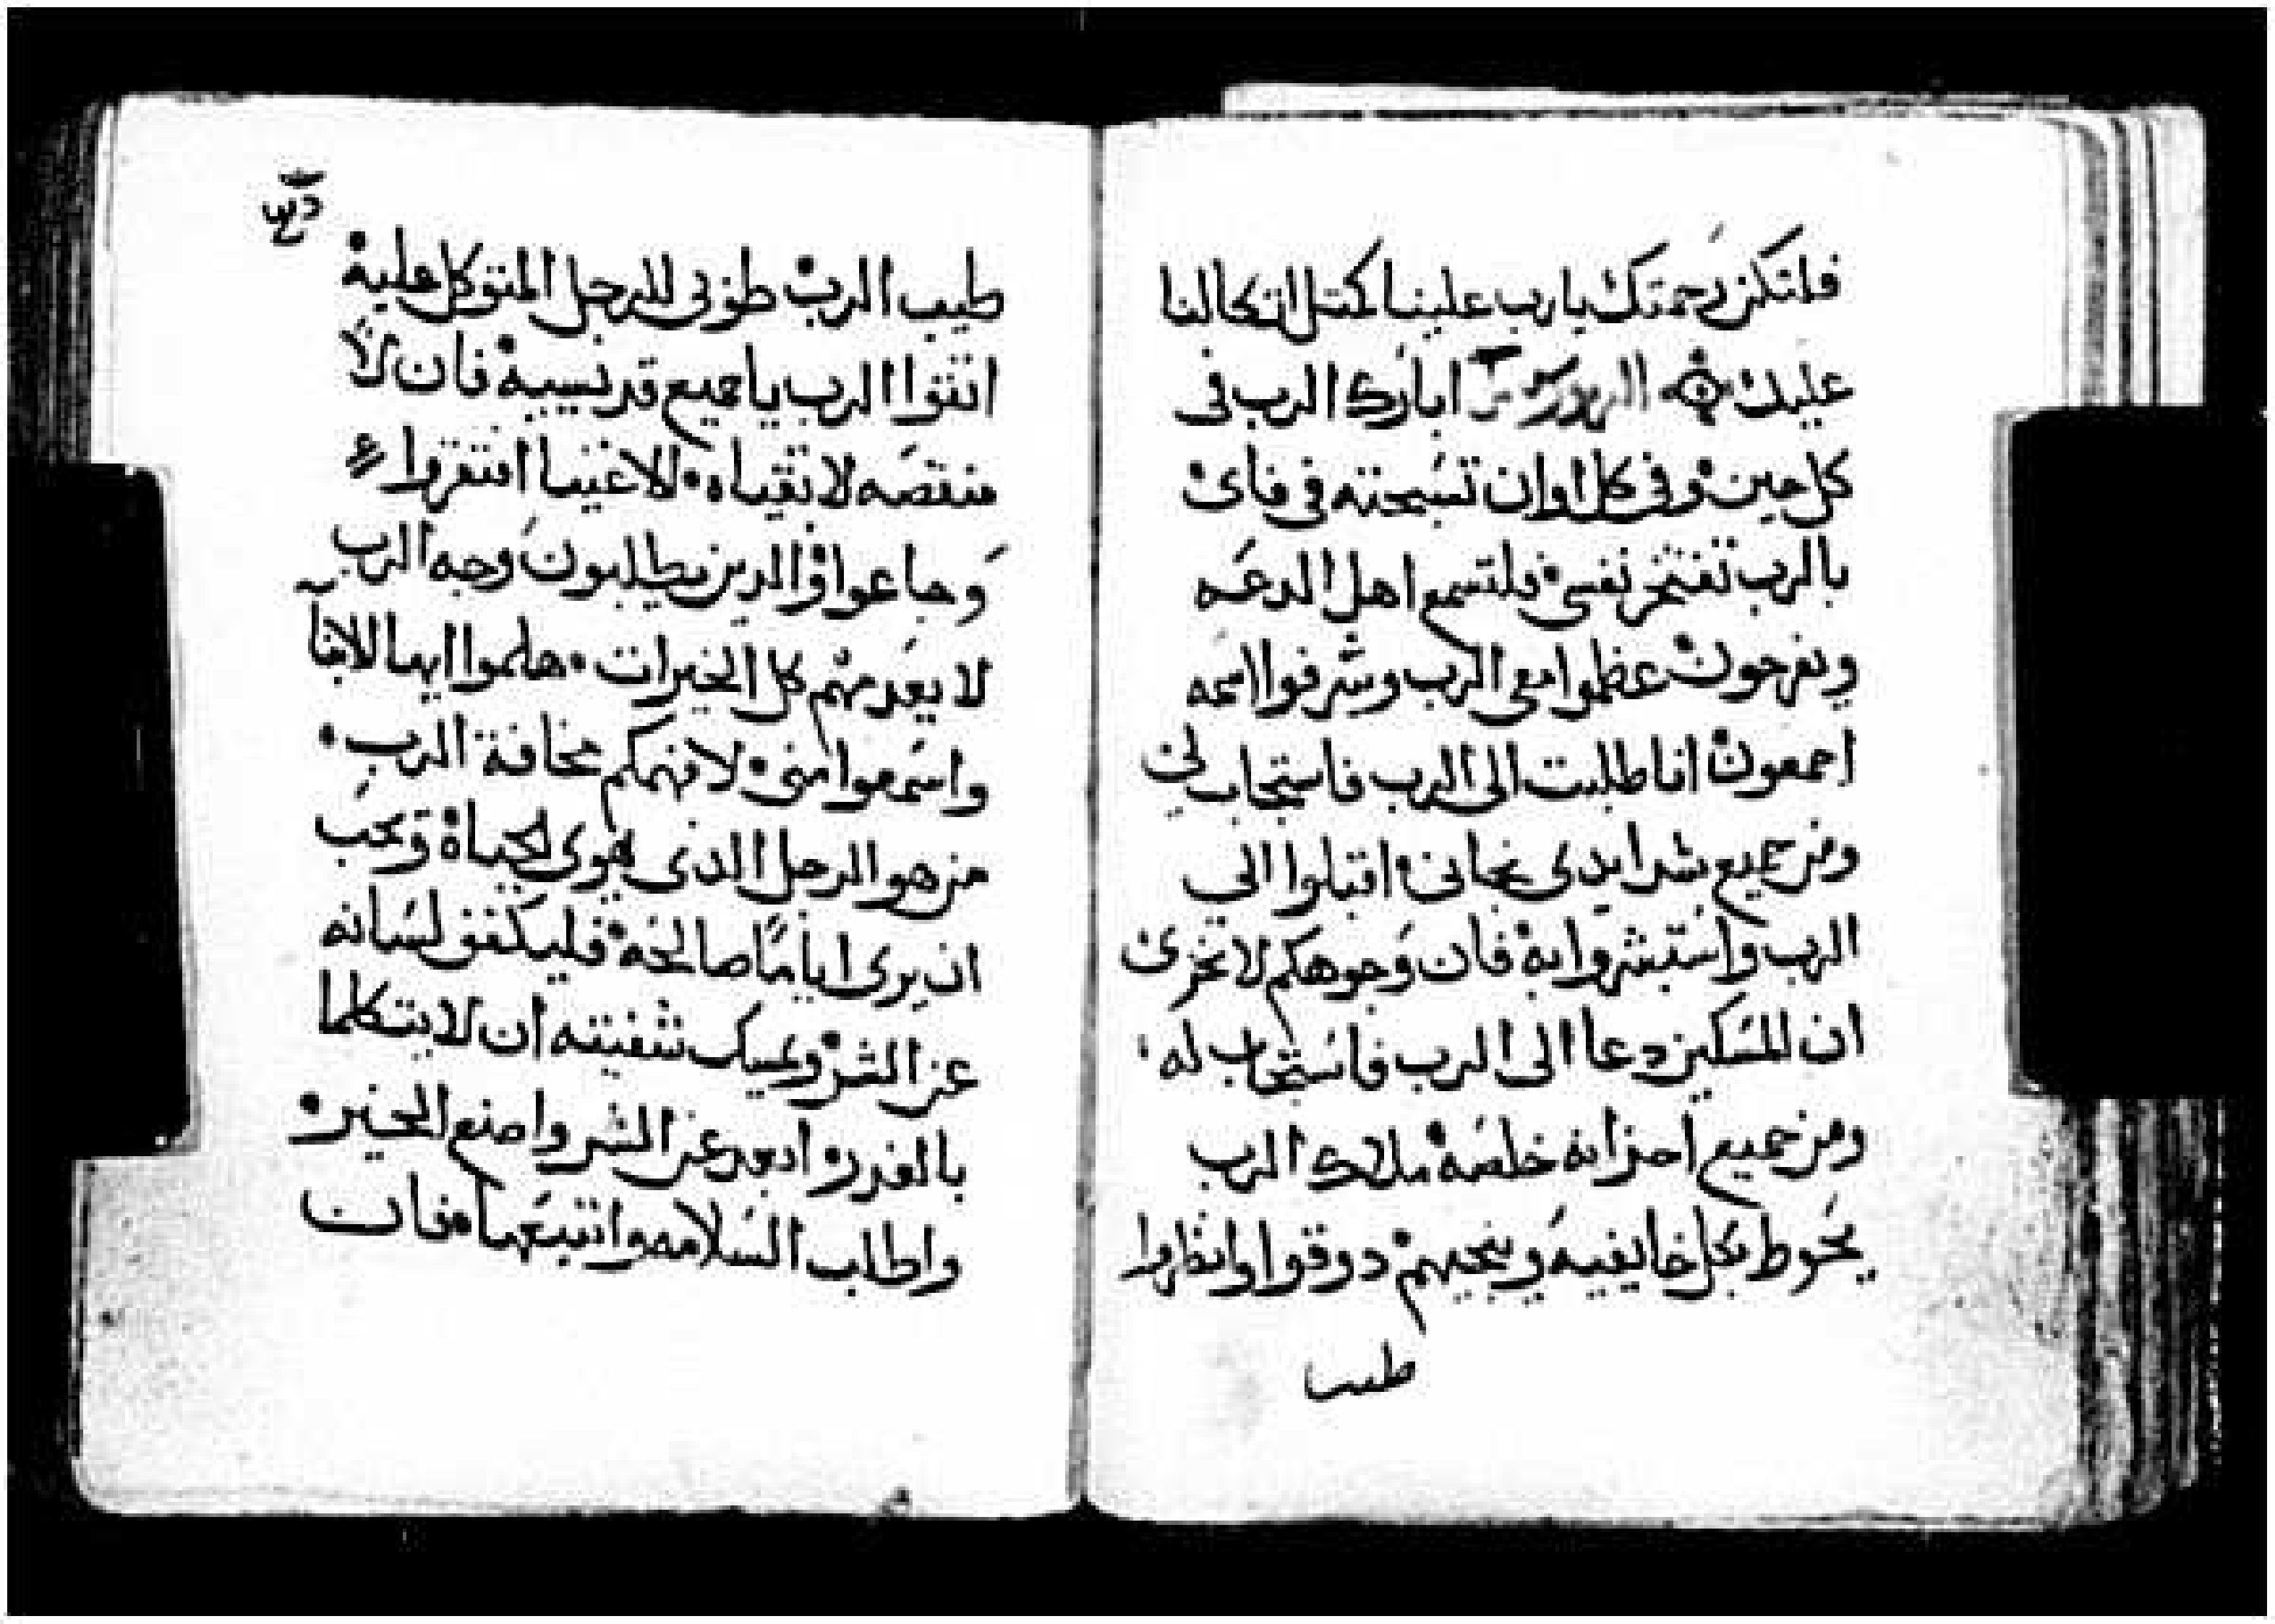 فلتكن رحمتك يارب علينا كمتل اتكالنا
عليك المزمور ابارك الرب فى
كل حين وفى كل اوان تسبحته فى فاى
بالرب تفتخر نفسى فلتسمع اهل الدعه
ويفرحون عظموا معى الرب وشرفوا اسمه
اجمعون انا طلبت الى الرب فاستجاب لى
ومن جميع شدايدى نجانى اقبلوا الى
الرب واستبشروا به فان وجوهكم لا تخزى
ان المسكين دعا الى الرب فاستجاب له
ومن جميع احزانه خلصه ملاك الرب
يحوط بكل خايفيه وينجيهم دوقوا وانظروا
طيب
طيب الرب طوبى للرجل المتوكل عليه
اتقوا الرب ياجميع قديسيه فان لا
منقصه لاتقياه الاغنيا افتقروا
وجاعوا والدين يطلبون وجه الرب
لا يعدمهم كل الخيرات هلموا ايها الابنا
واسمعوا منى لافهمكم مخافة الرب
من هو الرجل الدى يهوى الحياة ويحب
ان يرى اياما صالحه فليكفف لسانه
عن الشر ويمسك شفيته ان لا يتكلما
بالغدر ابعد عن الشر واصنع الخير
واطلب السلامه واتبعها فان